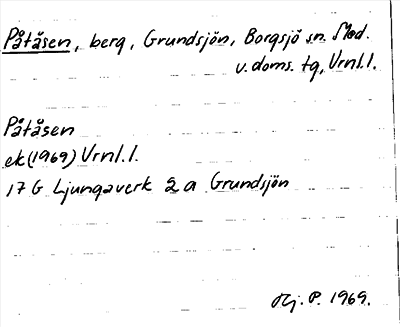 Påtåsen, berg, Grundsjön, Borgsjö sn. Med.
v. doms. tg, Vrnl.l.
Påtåsen
ek (1969) Vrnl.l.
17 G Ljungaverk 2 a Grundsjön
Hj. P. 1969.